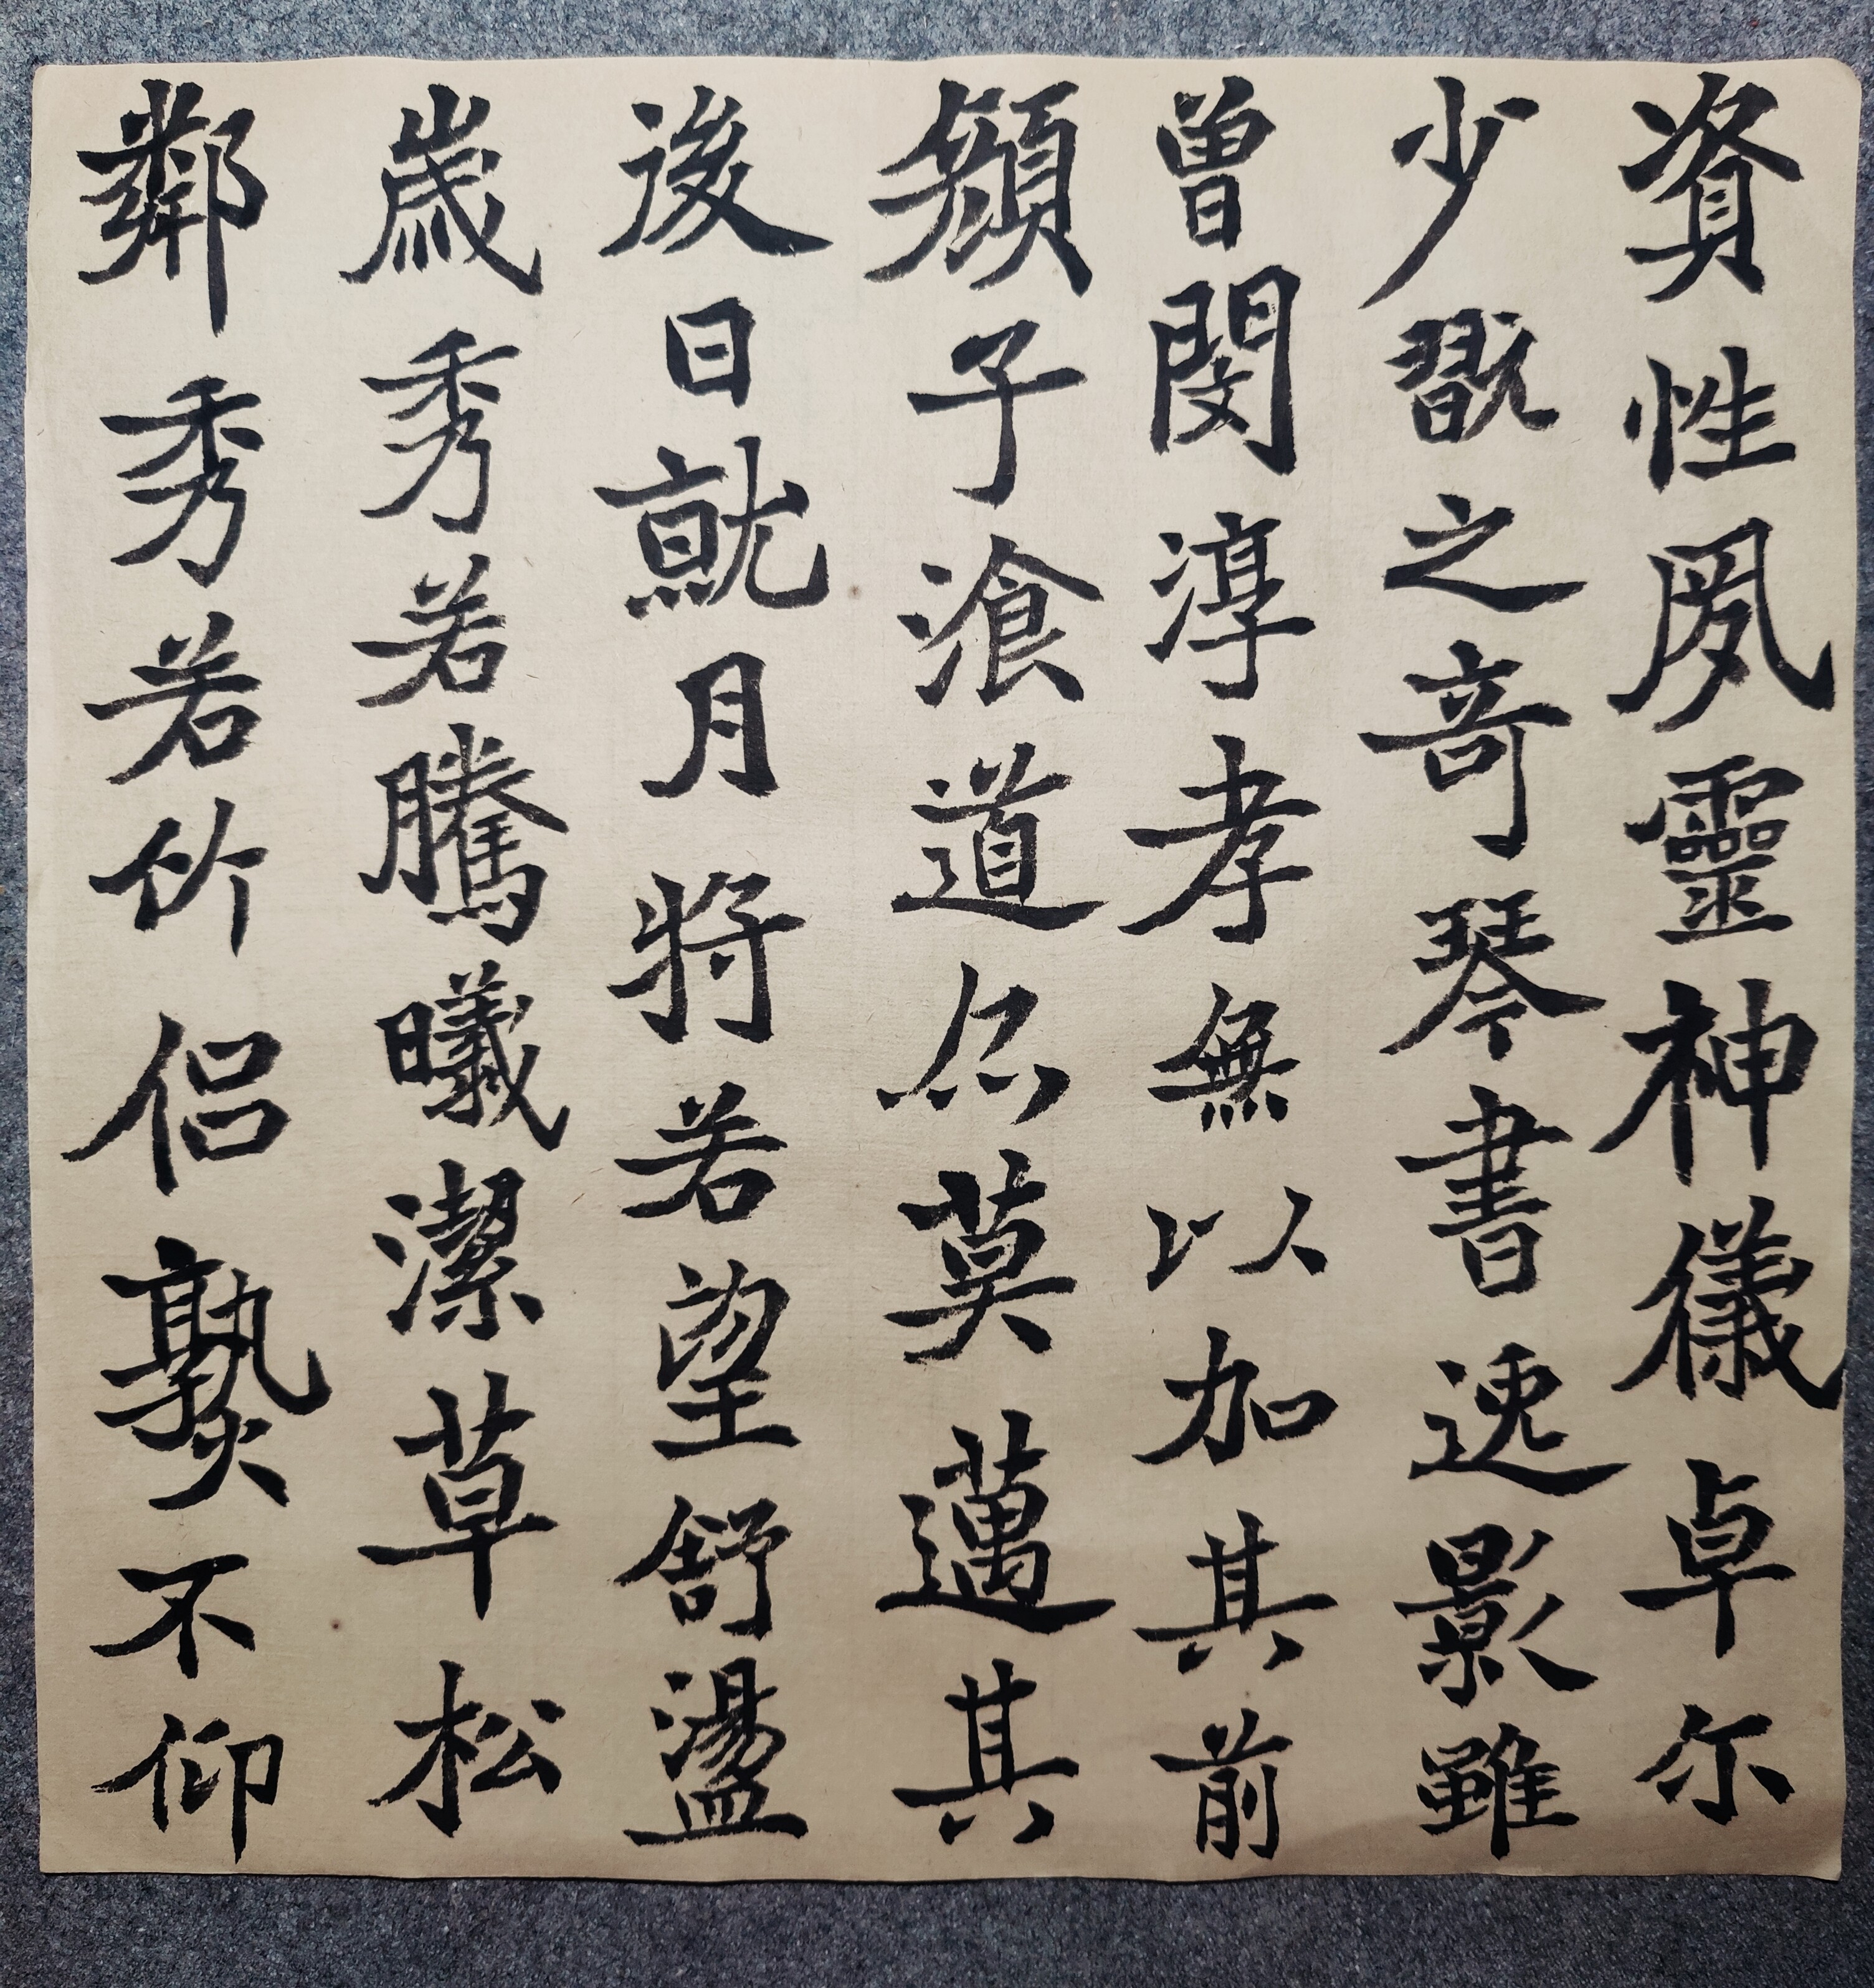 資性夙靈神儀卓尓
少翫之竒琴書逸影雖
曾閔淳孝無以加其前
顏子湌道亦莫邁其
後日就月將若望舒盪
歲秀若騰曦潔草松
鄰秀若竹侶熟不仰